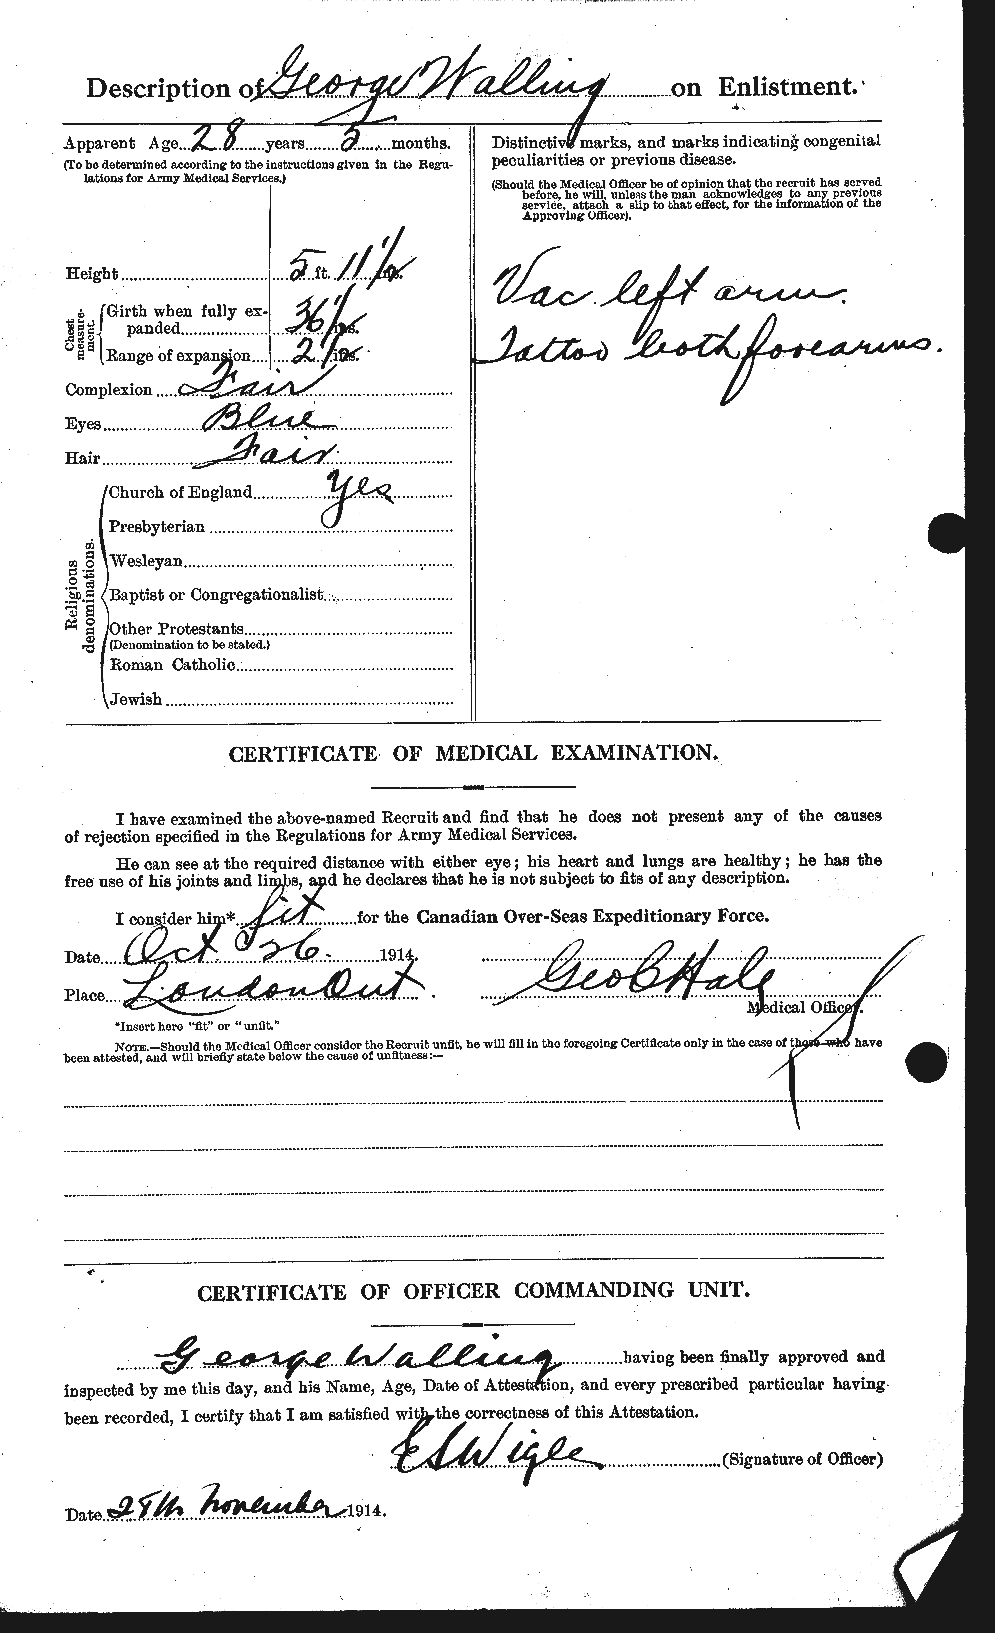 Description of George Walling on Enlistment.
Apparent Age 28 years 5 months.
(To be determined according to the instructions given in the Regu-
lations for Army Medical Services.)
Height 5 ft. 11 ins.
Chest measure-ment.
Girth when fully ex-
panded 36 ins.
Range of expansion 2 ins.
Complexion Fair
Eyes Blue
Hair Fair
Religious denominations.
Church of England Yes
Presbyterian
Wesleyan
Baptist or Congregationalist
Other Protestants
(Denomination to be stated.)
Roman Catholic
Jewish
Distinctive marks, and marks indicating congenital
peculiarities or previous disease.
(Should the Medical Officer be of opinion that the recruit has served
before, he will, unless the man acknowledges to any previous
service, attach a slip to that effect, for the information of the
Approving Officer).
Vac left arm.
Tattoo both forearms.
CERTIFICATE OF MEDICAL EXAMINATION.
I have examined the above-named Recruit and find that he does not present any of the causes
of rejection specified in the Regulations for Army Medical Services.
He can see at the required distance with either eye; his heart and lungs are healthy; he has the
free use of his joints and limbs, and he declares that he is not subject to fits of any description.
I consider him* fit for the Canadian Over-Seas Expeditionary Force.
Date Oct 26. 1914.
Place London Ont.
Geo C Hale
Medical Officer.
*Insert here "fit" or "unfit."
NOTE.—Should the Medical Officer consider the Recruit unfit, he will fill in the foregoing Certificate only in the case of those who have
been attested, and will briefly state below the cause of unfitness:—
CERTIFICATE OF OFFICER COMMANDING UNIT.
George Walling having been finally approved and
inspected by me this day, and his Name, Age, Date of Attestation, and every prescribed particular having
been recorded, I certify that I am satisfied with the correctness of this Attestation.
E S Wigle (Signature of Officer)
Date November 1914.